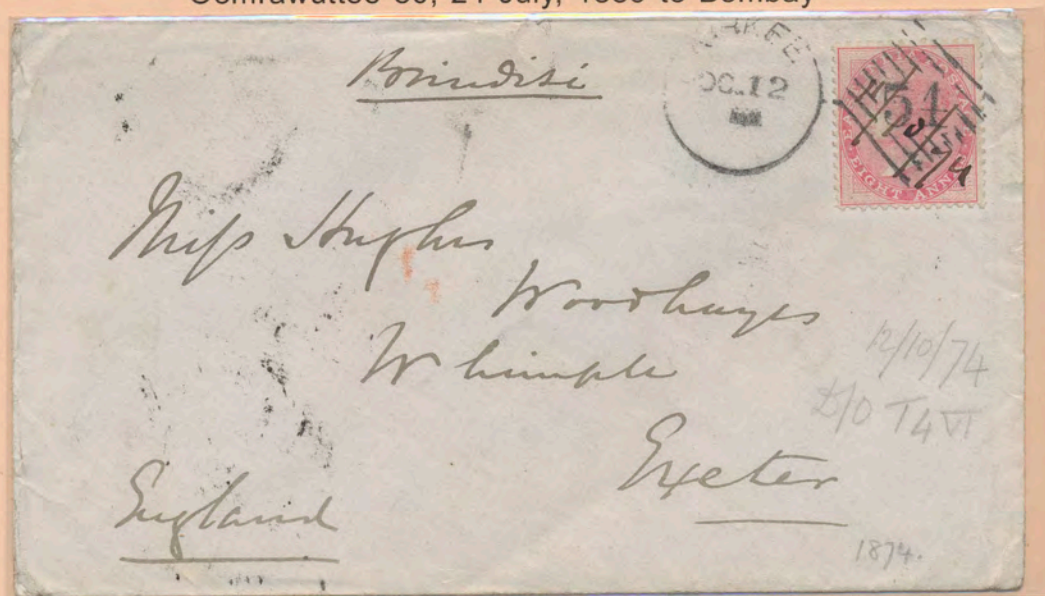 Brindisi
OC.12
51
EIGHT ANN
Miss Hughes
Woodhayes
Whimple
Exeter
England
12/10/74
D/O T4 VI
1874.